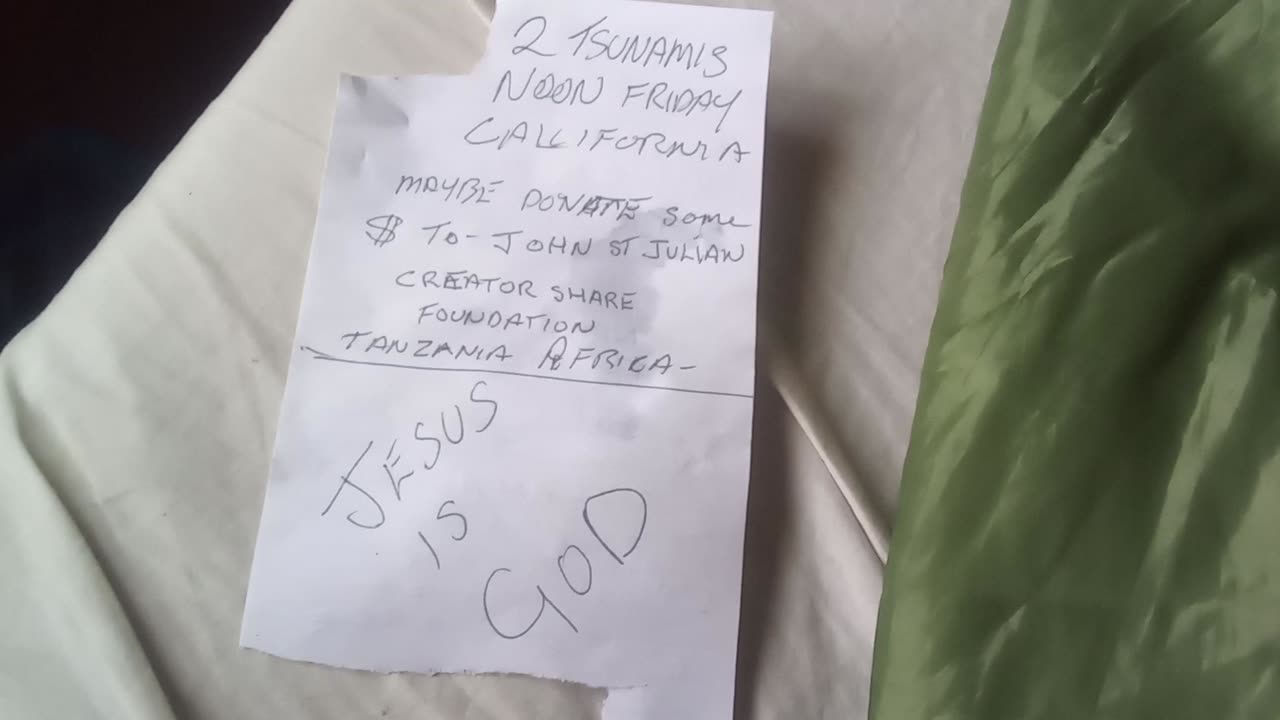 2 TSUNAMIS
NOON FRIDAY
CALLIFORNIA
MAYBE DONATE SOME
$ TO - JOHN ST JULIAN
CREATOR SHARE
FOUNDATION
TANZANIA AFRIKA -
JESUS
IS
GOD